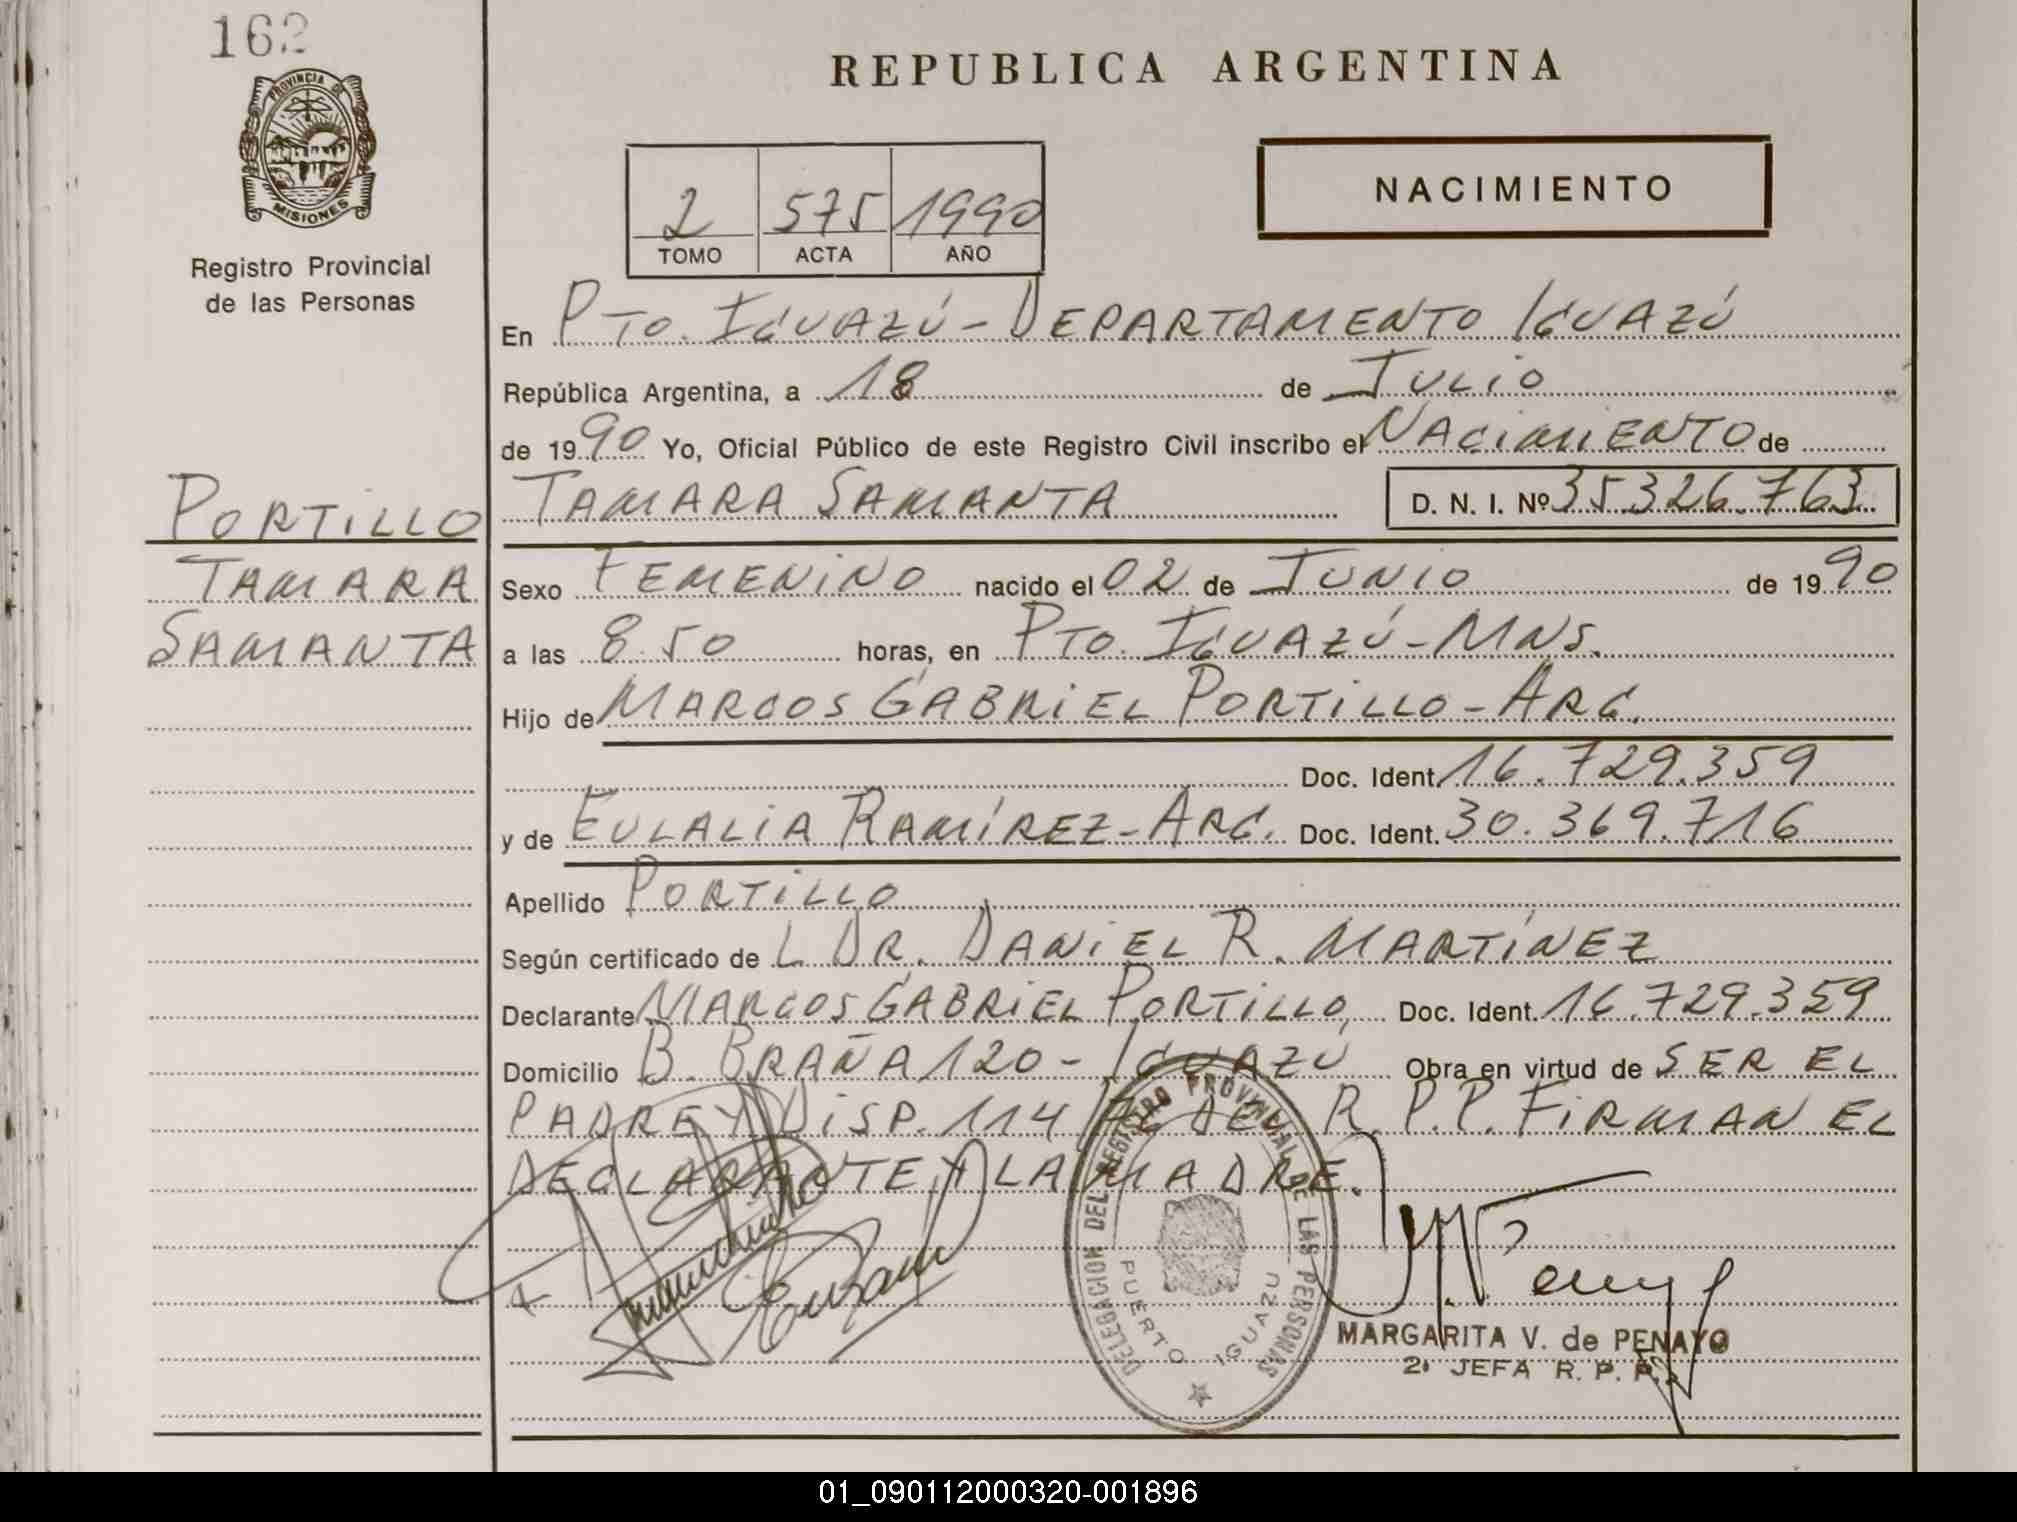 162
PROVINCIA DE
MISIONES
Registro Provincial
de las Personas
REPUBLICA ARGENTINA
2 575 1990
TOMO ACTA AÑO
NACIMIENTO
En PTO. IGUAZÚ - DEPARTAMENTO IGUAZÚ
República Argentina, a 18 de JULIO
de 1990 Yo, Oficial Público de este Registro Civil inscribo el NACIMIENTO de
PORTILLO
TAMARA
SAMANTA
TAMARA SAMANTA D. N. I. Nº 35.326.763
Sexo FEMENINO nacido el 02 de JUNIO de 1990
a las 8.50 horas, en PTO. IGUAZÚ - MNS.
Hijo de MARCOS GABRIEL PORTILLO - ARG.
Doc. Ident. 16.729.359
y de EULALIA RAMÍREZ - ARG. Doc. Ident. 30.369.716
Apellido PORTILLO
Según certificado de L DR. DANIEL R. MARTÍNEZ
Declarante MARCOS GABRIEL PORTILLO, Doc. Ident. 16.729.359
Domicilio B. BRAÑA 120 - IGUAZÚ Obra en virtud de SER EL
PADRE Y DISP. 114 DEL R.P.P. FIRMAN EL
DECLARANTE Y LA MADRE.
DELEGACION DEL REGISTRO PROVINCIAL DE LAS PERSONAS
PUERTO IGUAZU
MARGARITA V. de PENAYO
2ª JEFA R. P. P.
01_090112000320-001896